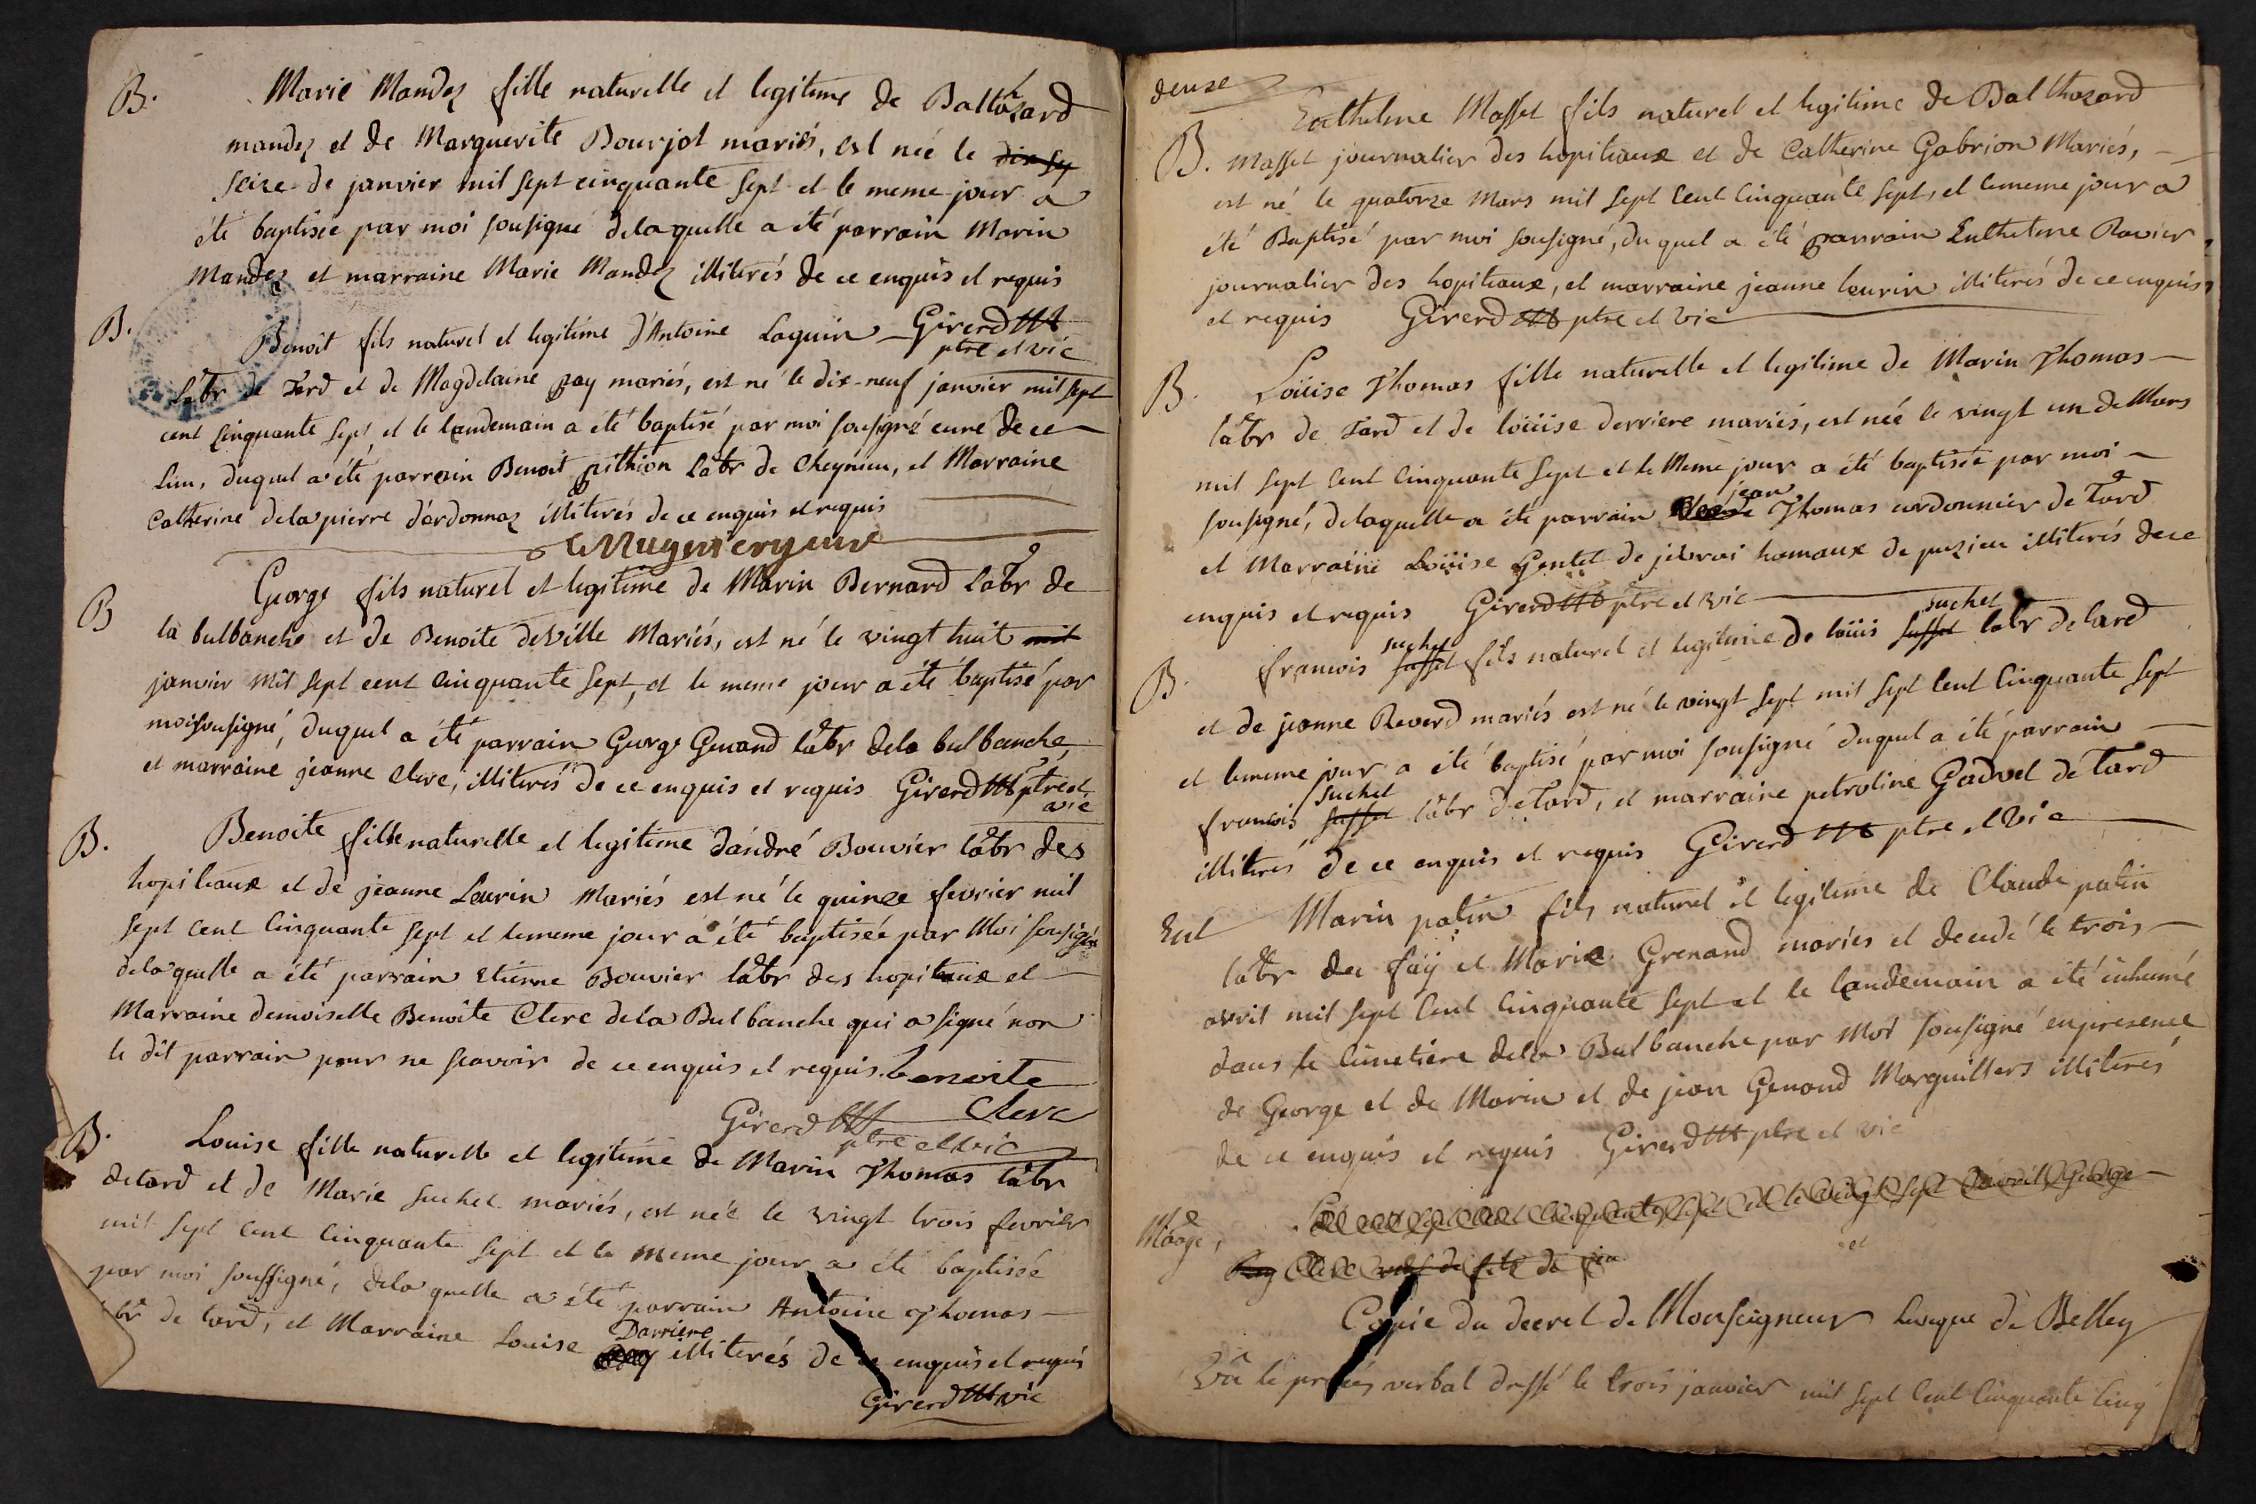 B. Marie Mandez fille naturelle et legitime de Balthazard
mandez et de Marguerite Bourjot mariés, est née le dix sep
seize de janvier mil sept cinquante sept et le meme jour a
été baptisée par moi sousigné delaquelle a été parrain Marin
Mandez et marraine Marie Mandez illiterés de ce enquis et requis
Girerd ptre et vic
B. Benoit fils naturel et legitime d'Antoine Laguin
labr de Tard et de Magdelaine pay mariés, est né le dix-neuf janvier mil sept
cent cinquante sept et le landemain a été baptisé par moi sousigné curé de ce
lieu, duquel a été parrain Benoit pithion labr de Cheynieu, et Marraine
Catherine delapierre d'ardonnaz illiterés de ce enquis et requis
curé
B George fils naturel et legitime de Marin Bernard labr de
la bulbanche et de Benoite deville Mariés, est né le vingt huit mil
janvier mil sept cent cinquante sept, et le meme jour a été baptisé par
moi sousigné, duquel a été parrain George Genand labr dela bulbanche,
et marraine jeanne Clerc, illiterés de ce enquis et requis Girerd ptre et
vic
B. Benoite fille naturelle et legitime d'andré Bouvier labr des
hopiteaux et de jeanne Laurin Mariés est né le quinze fevrier mil
sept cent cinquante sept et lememe jour a été baptisée par Moi sousigné
delaquelle a été parrain etienne Bouvier labr des hopiteaux et
Marraine demoiselle Benoite Clerc dela Bulbanche qui a signé non
le dit parrain pour ne scavoir de ce enquis et requis. benoite
Clerc
Girerd ptre et vic
B. Louise fille naturelle et legitime de Marin Thomas labr
detard et de Marie suchet mariés, est née le vingt trois fevrier
mil sept cent cinquante sept et le meme jour a été baptisée
par moi soussigné, delaquelle a été parrain Antoine Thomas
labr de tard, et Marraine Louise Darriere illiterés de ce enquis et requis
Girerd vic
deuze
B. Enthelme Masset fils naturel et legitime de Balthazard
Masset journalier des hopiteaux et de Catherine Gabrion Mariés,
est né le quatorze Mars mil sept cent cinquante sept, et lememe jour a
été Baptisé par moi sousigné, duquel a été parrain Enthelme Ravier
journalier des hopiteaux, et marraine jeanne laurin illiterés de ce enquis
et requis Girerd ptre et vic
B. Loüise Thomas fille naturelle et legitime de Marin Thomas
labr de Tard et de loüise derriere mariés, est née le vingt un de Mars
mil sept cent cinquante sept et le Meme jour a été baptisée par moi
sousigné, delaquelle a été parrain jean Thomas cordonnier de Tard
et Marraine Loüise Gentet de hamaux de puzieu illiterés de ce
enquis et requis Girerd ptre et vic
B. francois suchet fils naturel et legitime de loüis suchet labr de tard
et de jeanne Reverd mariés est né le vingt sept mil sept cent cinquante sept
et lememe jour a été baptisé par moi sousigné duquel a été parrain
francois suchet labr de Tard, et marraine petroline Gadvel de Tard
illiterés de ce enquis et requis Girerd ptre et vic
Ent Marin patin fils naturel et legitime de Claude patin
labr de faÿ et Marie Grenand mariés et decedé le trois
avril mil sept cent cinquante sept et le landemain a été inhumé
dans le cimetiere dela Bulbanche par Moi sousigné enpresence
de George et de Marin et de jean Genand Marguilliers illiterés
de ce enquis et requis Girerd ptre et vic
Maage, mil sept cent cinquante sept et le vingt sept d'avril George
Clerc fils de
et
Copie du decret de Monseigneur leveque de Belley
Vu le procés verbal dressé le trois janvier mil sept cent cinquante cinq